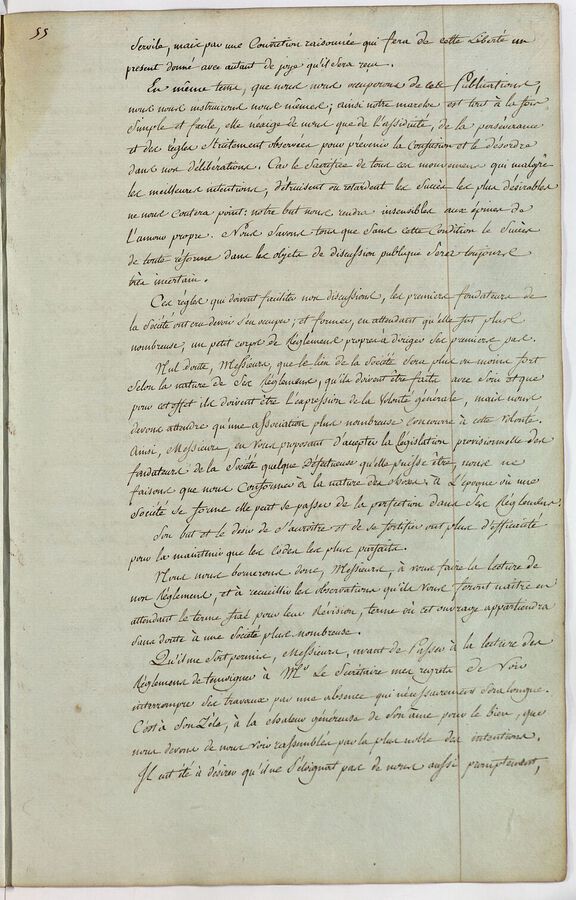 55
Servile, mais par une Conviction raisonnée qui fera de cette Liberté un
present donné avec autant de joye qu'il Sera reçu.
En même tems, que nous nous occuperons de ces Publications,
nous nous instruirons nous mêmes; ainsi notre marche est tout à la fois
Simple et facile, elle n'exige de nous que de l'assiduité, de la perseverance
et des regles Strictement observées pour prévenir la Confusion et le désordre
dans nos délibérations. Car le Sacrifice de tous ces mouvemens qui malgré
les meilleures intentions, détruisent ou retardent les Succès les plus désirables
ne nous Coutera point: notre but nous rendra insensibles aux épines de
l'amour propre. Nous Savons tous que Sans cette Condition le Succès
de toute réforme dans les objets de discussion publique Serait toujours
bien incertain.
Ces régles qui doivent faciliter nos discussions, les premiers fondateurs de
la Société ont cru devoir s'en occuper; et former, en attendant qu'elle fut plus
nombreuse; un petit corps de Réglemens propres à diriger Ses premiers pas.
Nul doute, Messieurs, que le lien de la Société Sera plus ou moins fort
Selon la nature de Ses Réglemens, qu'ils doivent être faits avec Soin et que
pour cet effet ils doivent être l'expression de la Volonté générale, mais nous
devons attendre qu'une association plus nombreuse concoure à cette Volonté.
Ainsi, Messieurs, en Vous proposant d'accepter la Législation provisionnelle des
fondateurs de la Société quelque Défectueuse qu'elle puisse être, nous ne
faisons que nous Conformer à la nature des choses. à l'Epoque où une
Société se forme elle peut se passer de la perfection dans Ses Réglemens.
Son but et le desir de s'accroitre et de se fortifier ont plus d'efficacité
pour la maintenir que les Codes les plus parfaits.
Nous nous bornerons donc, Messieurs, à vous faire la lecture de
nos Réglemens, et à recueillir les observations qu'ils Vous feront naître en
attendant le terme fixé pour leur Révision, terme où cet ouvrage appartiendra
Sans doute à une Société plus nombreuse.
Qu'il me Soit permis, Messieurs, avant de Passer à la lecture des
Réglemens de temoigner à Mr. Le Secrétaire mes regrets de Voir
interrompre Ses travaux par une absence qui n'heureusement Sera longue.
C'est à Son Zele, à la chaleur généreuse de Son ame pour le bien, que
nous devons de nous voir rassemblés par la plus noble des intentions.
Il eut été à désirer qu'il ne S'éloignat pas de nous aussi promptement,